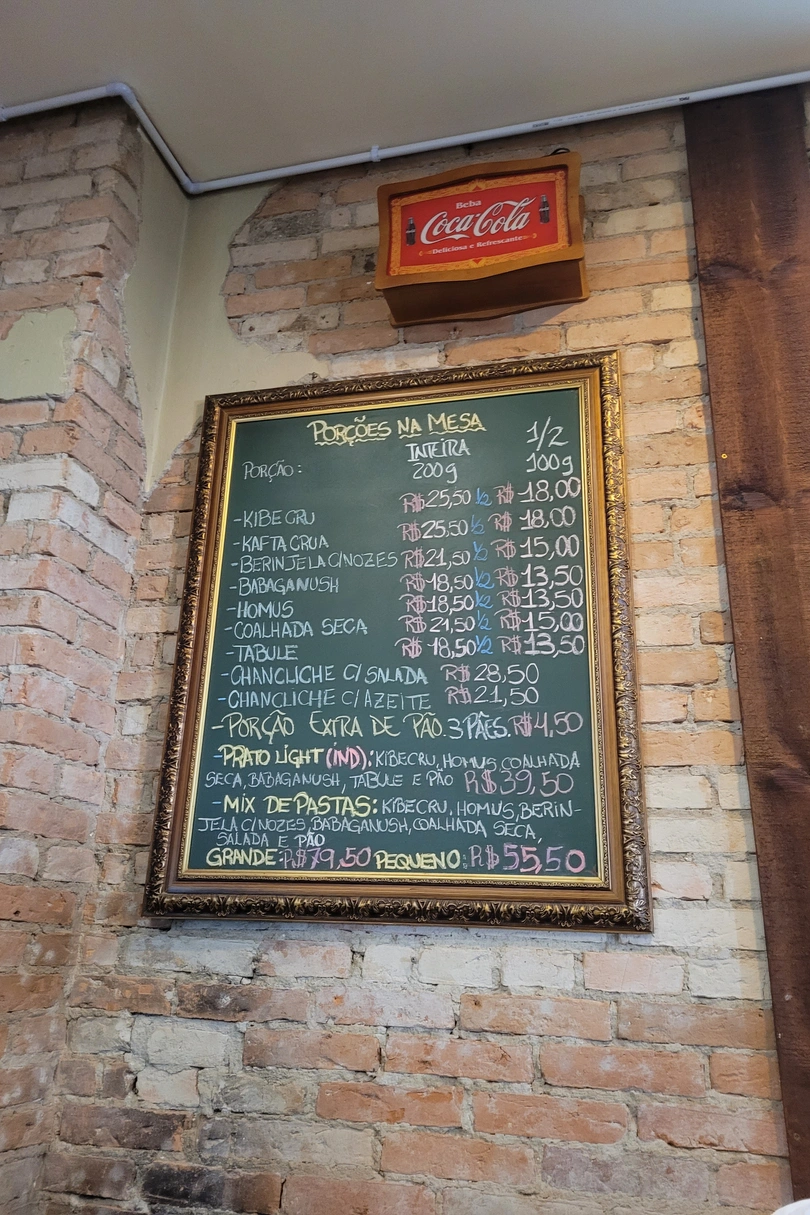 Beba
Coca-Cola
Deliciosa e Refrescante
PORÇÕES NA MESA
PORÇÃO: INTEIRA 200g 1/2 100g
-KIBE CRU R$25,50 1/2 R$ 18,00
-KAFTA CRUA R$25,50 1/2 R$ 18,00
-BERINJELA C/NOZES R$21,50 1/2 R$ 15,00
-BABAGANUSH R$18,50 1/2 R$ 13,50
-HOMUS R$18,50 1/2 R$ 13,50
-COALHADA SECA R$21,50 1/2 R$ 15,00
-TABULE R$ 18,50 1/2 R$ 13,50
-CHANCLICHE C/SALADA R$28,50
-CHANCLICHE C/AZEITE R$21,50
-PORÇÃO EXTRA DE PÃO. 3 PÃES. R$4,50
-PRATO LIGHT (IND): KIBE CRU, HOMUS, COALHADA
SECA, BABAGANUSH, TABULE E PÃO R$39,50
-MIX DE PASTAS: KIBE CRU, HOMUS, BERIN-
JELA C/NOZES, BABAGANUSH, COALHADA SECA,
SALADA E PÃO
GRANDE: R$79,50 PEQUENO: R$55,50